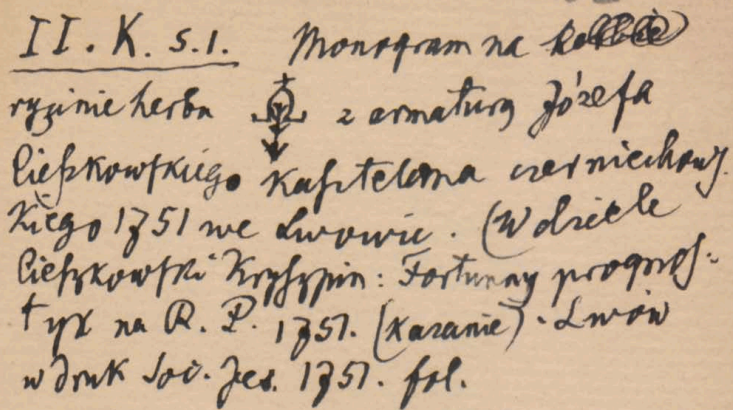 II. K. s. 1. Monogram na
rycinie herbu z armaturą Józefa
Cieszkowskiego Kasztelana czerniechows-
kiego 1751 we Lwowie. (W dziele
Cieszkowski Kryszpin: Fortunny prognos-
tyk na R. P. 1751. (Kazanie). Lwów
w druk Soc. Jes. 1751. fol.